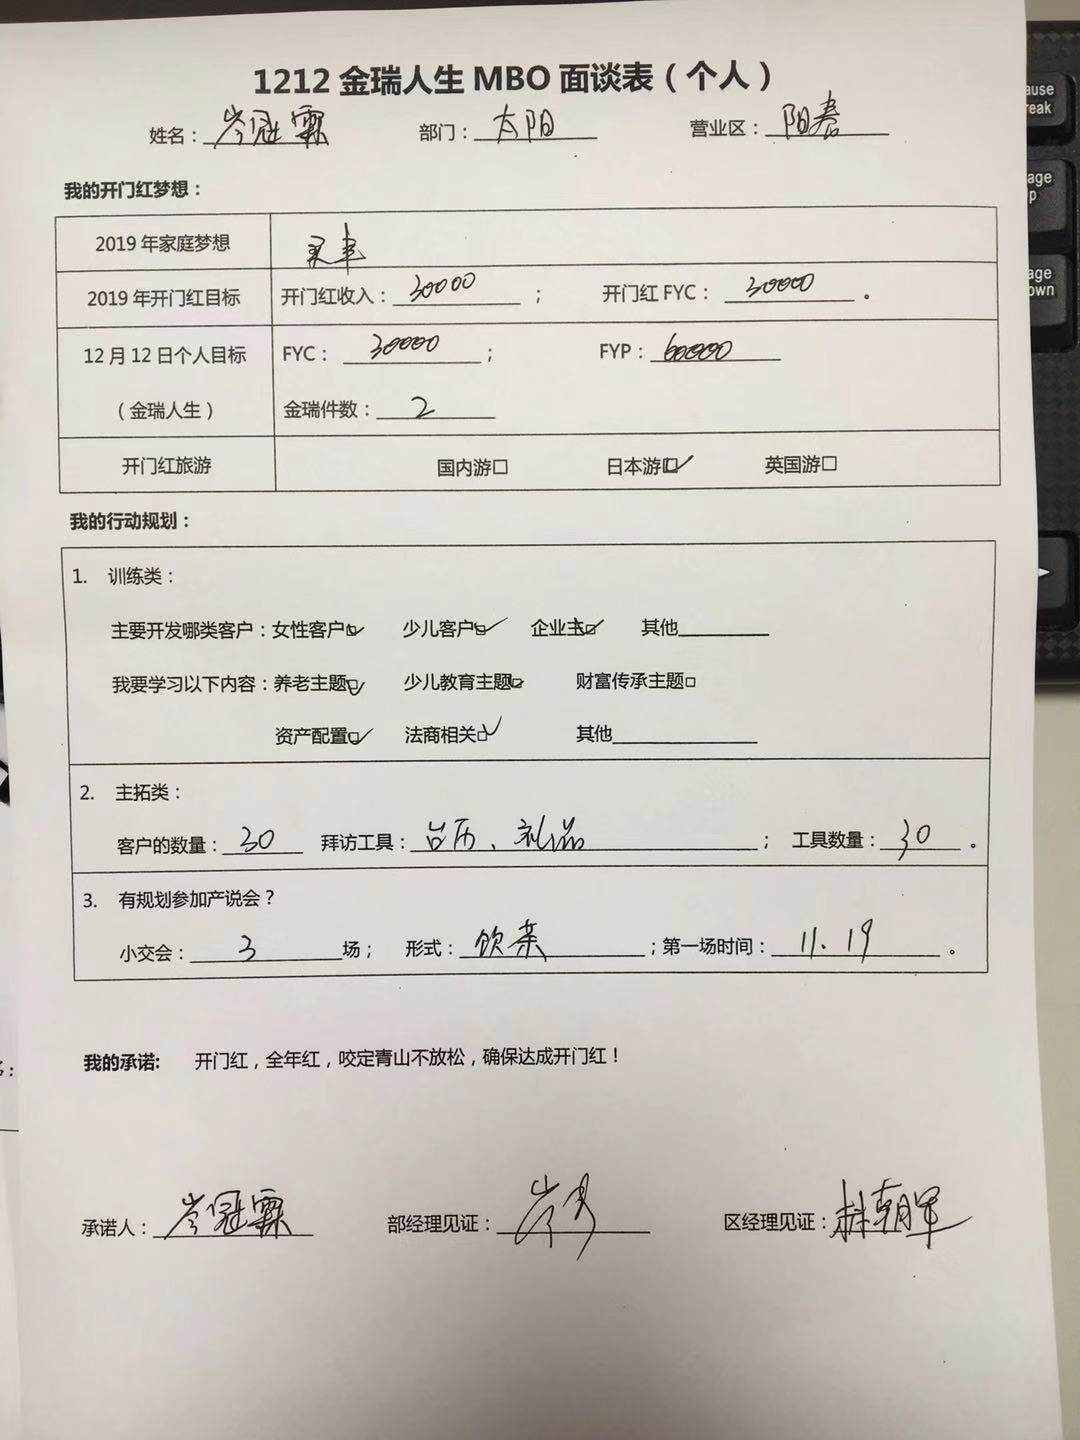 1212 金瑞人生 MBO 面谈表（个人）
姓名：岑冠霖 部门：太阳 营业区：阳春
我的开门红梦想：
2019 年家庭梦想 买车
2019 年开门红目标 开门红收入：30000 ； 开门红 FYC：30000 。
12 月 12 日个人目标 FYC：30000 ； FYP：60000
（金瑞人生） 金瑞件数：2
开门红旅游 国内游□ 日本游□✓ 英国游□
我的行动规划：
1. 训练类：
主要开发哪类客户：女性客户□✓ 少儿客户□✓ 企业主□✓ 其他
我要学习以下内容：养老主题□✓ 少儿教育主题□✓ 财富传承主题□
资产配置□✓ 法商相关□✓ 其他
2. 主拓类：
客户的数量：30 拜访工具：台历、礼品 ； 工具数量：30 。
3. 有规划参加产说会？
小交会：3 场； 形式：饮茶 ；第一场时间：11.19 。
我的承诺: 开门红，全年红，咬定青山不放松，确保达成开门红！
承诺人：岑冠霖 部经理见证：岑 区经理见证：林朝军
ause
reak
age
p
age
own